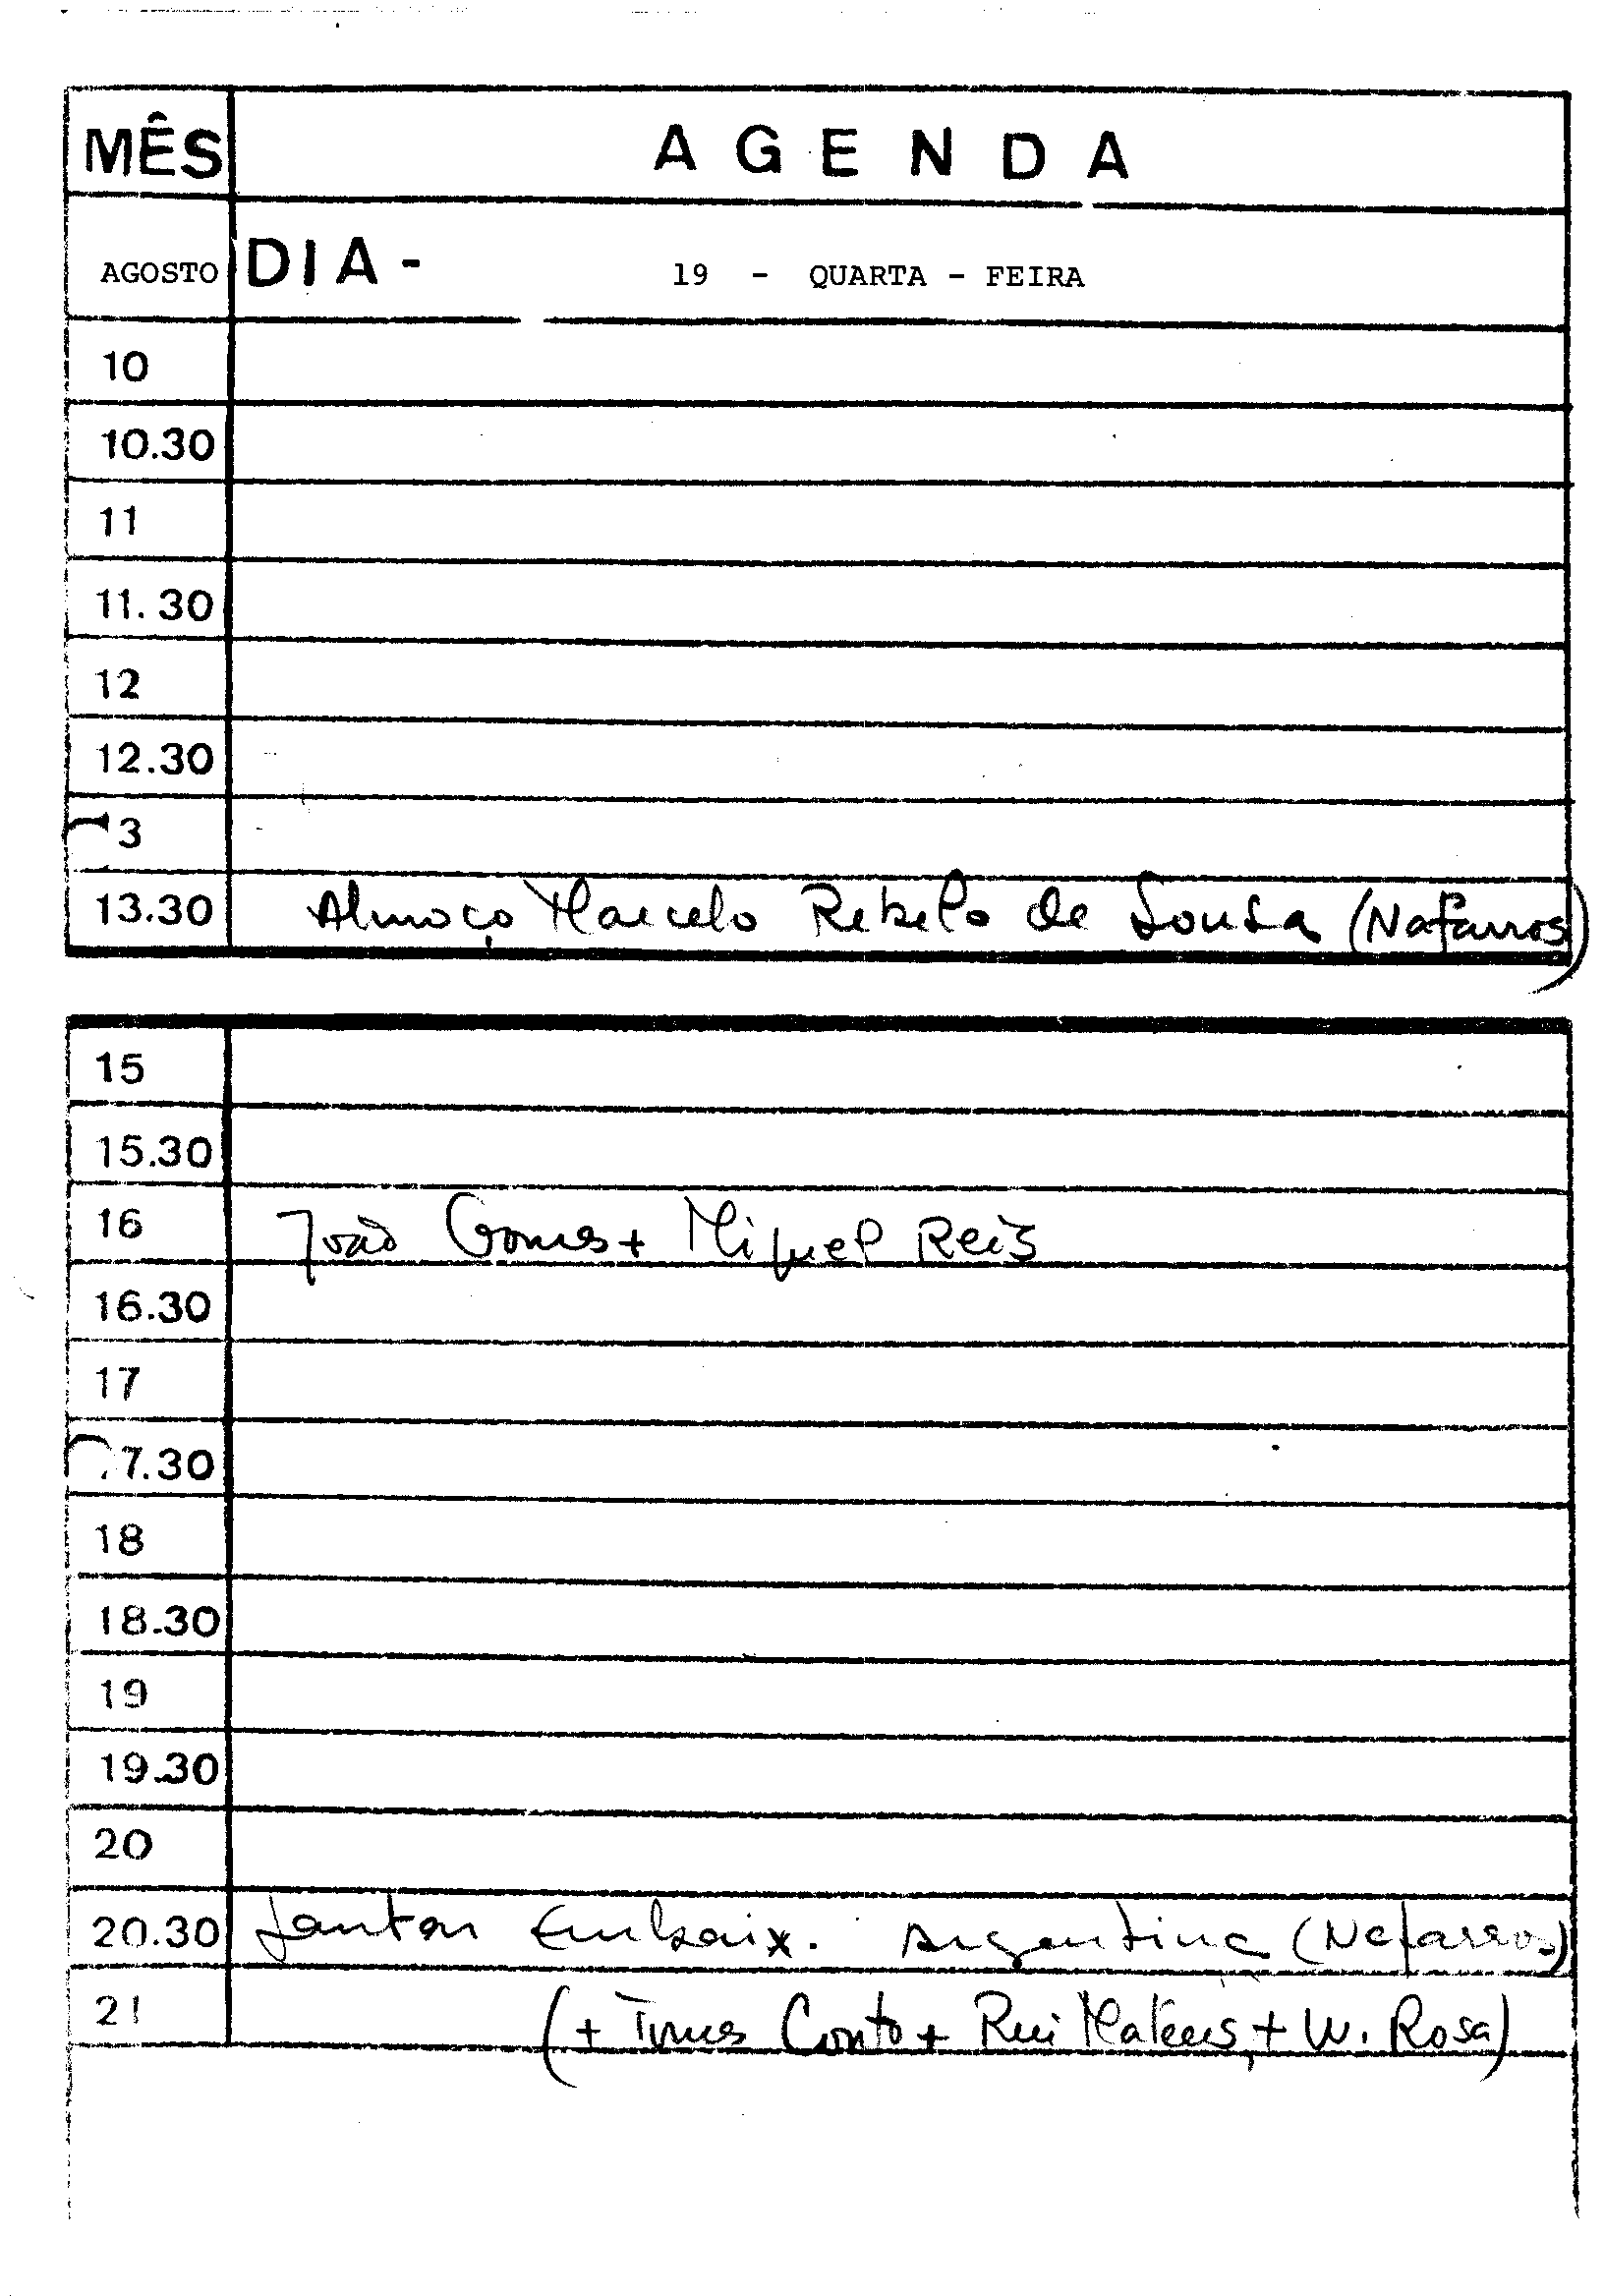 MÊS AGENDA
AGOSTO DIA - 19 - QUARTA - FEIRA
10
10.30
11
11.30
12
12.30
3
13.30 Almoço Marcelo Rebelo de Sousa (Nafarros)
15
15.30
16 João Gomes + Miguel Reis
16.30
17
7.30
18
18.30
19
19.30
20
20.30 Jantar Embaix. Argentina (Nafarros)
21 (+ Times Couto + Rui Mateus, + W. Rosa)